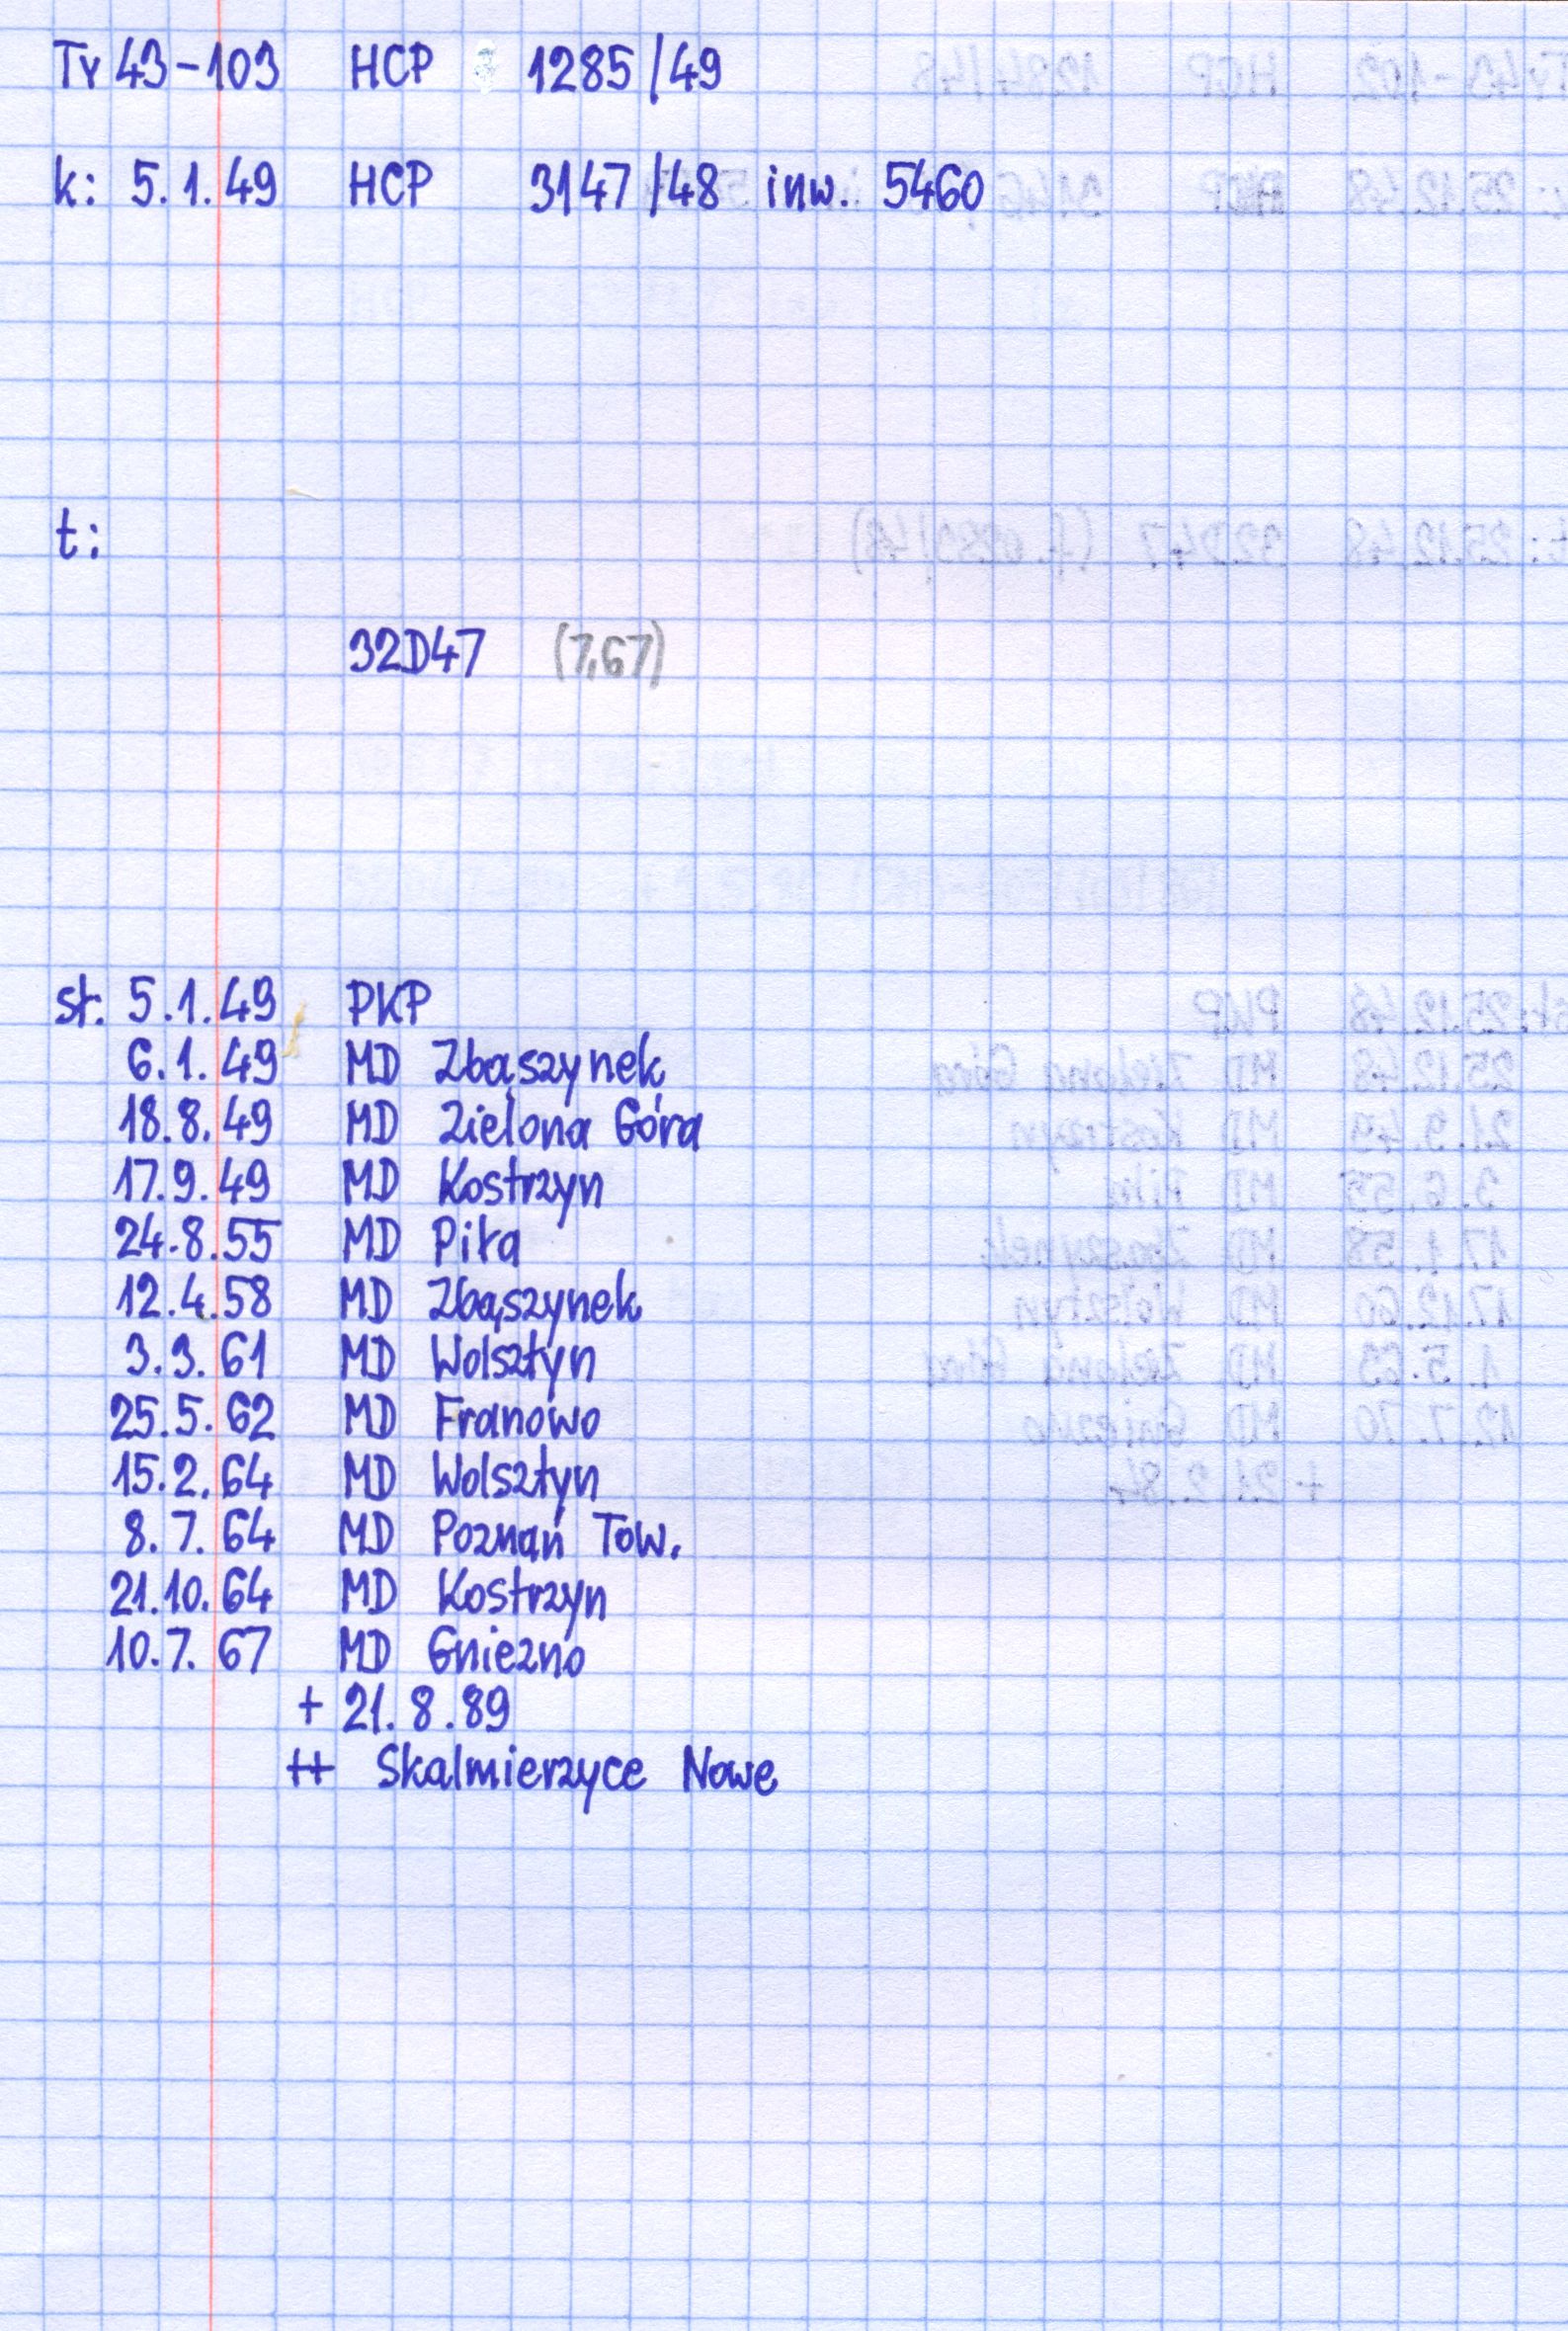 Ty 43-103 HCP 1285/49
k: 5.1.49 HCP 3147/48 inw. 5460
t:
32D47 (7,67)
st: 5.1.49 PKP
6.1.49 MD Zbąszynek
18.8.49 MD Zielona Góra
17.9.49 MD Kostrzyn
24.8.55 MD Piła
12.4.58 MD Zbąszynek
3.3.61 MD Wolsztyn
25.5.62 MD Franowo
15.2.64 MD Wolsztyn
8.7.64 MD Poznań Tow.
21.10.64 MD Kostrzyn
10.7.67 MD Gniezno
+ 21.8.89
++ Skalmierzyce Nowe